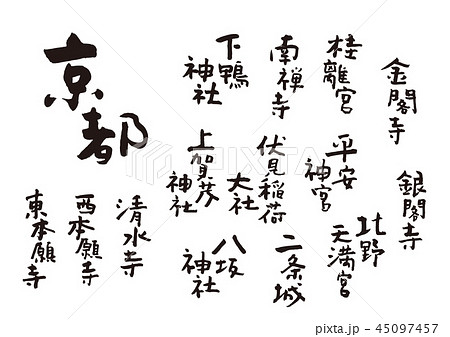 京都
金閣寺
銀閣寺
桂離宮
平安
神宮
北野
天満宮
南禅寺
伏見稲荷
大社
二条城
下鴨
神社
上賀茂
神社
八坂
神社
清水寺
西本願寺
東本願寺
PIXTA
pixta.jp - 45097457